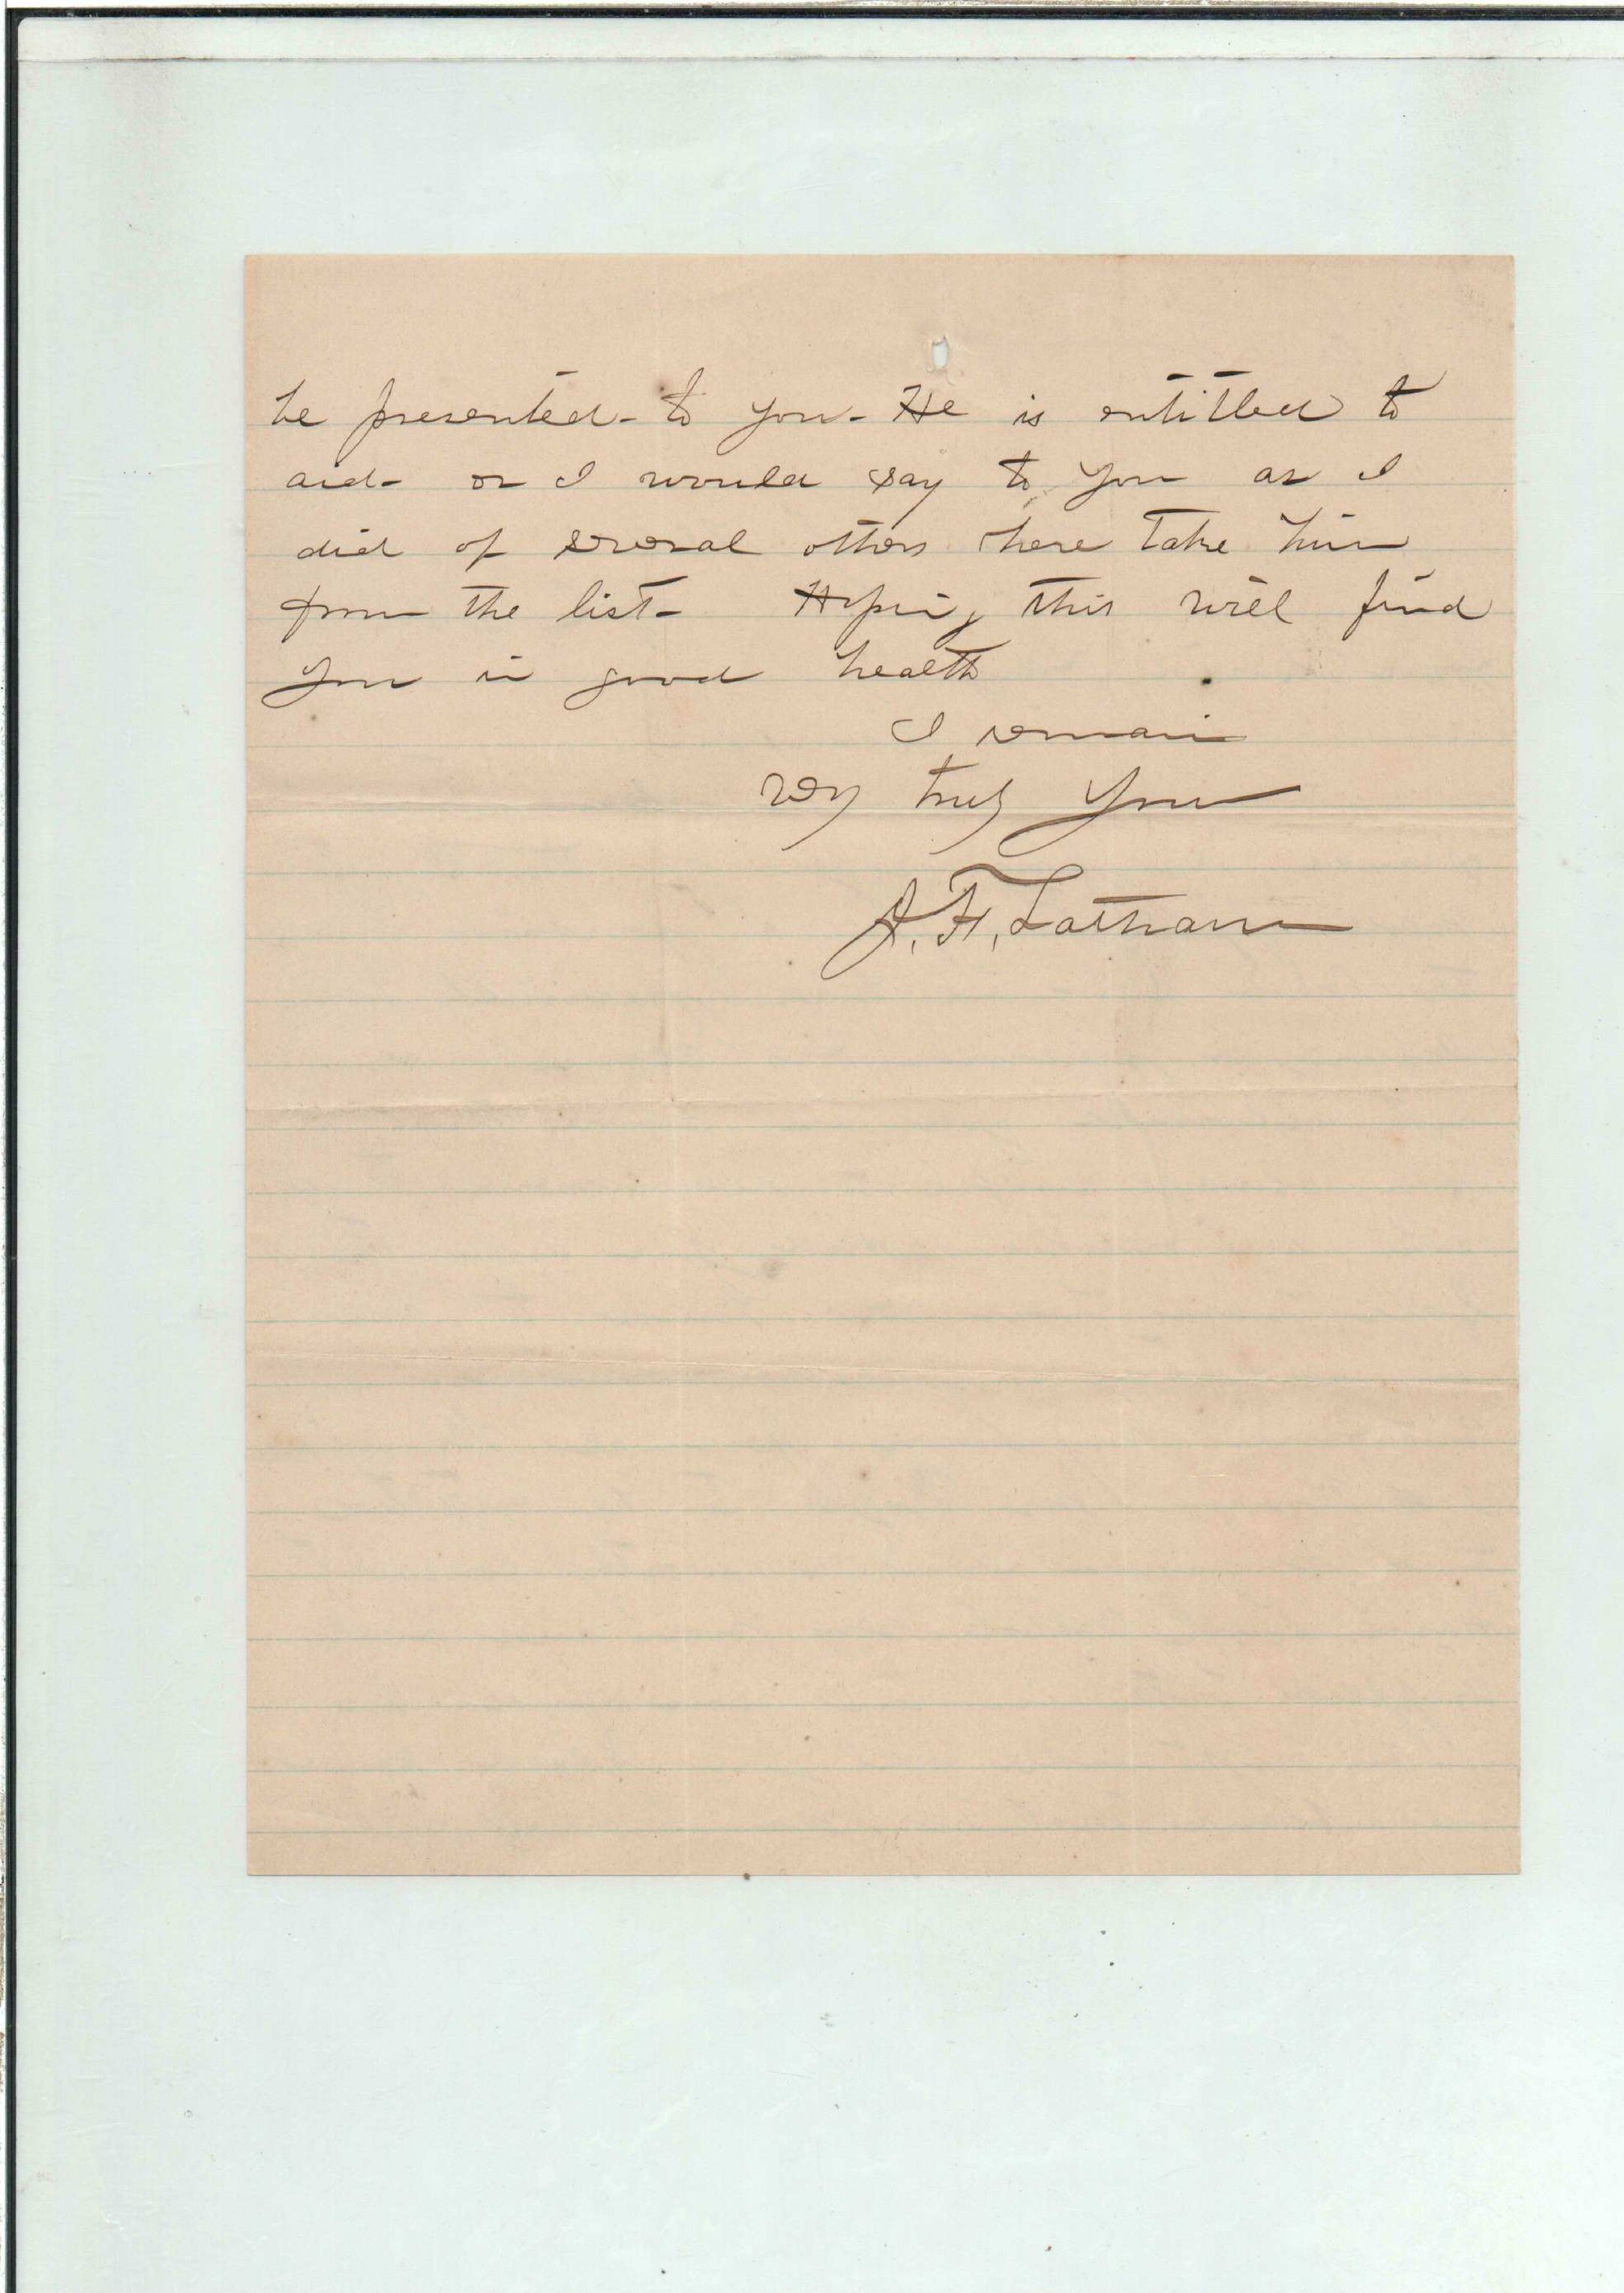 be presented - to you - He is entitled to
aid - or I would say to you as I
did of several others here take him
from the list - Hoping this will find
you in good health
I remain
very truly yours
J. F. Latham